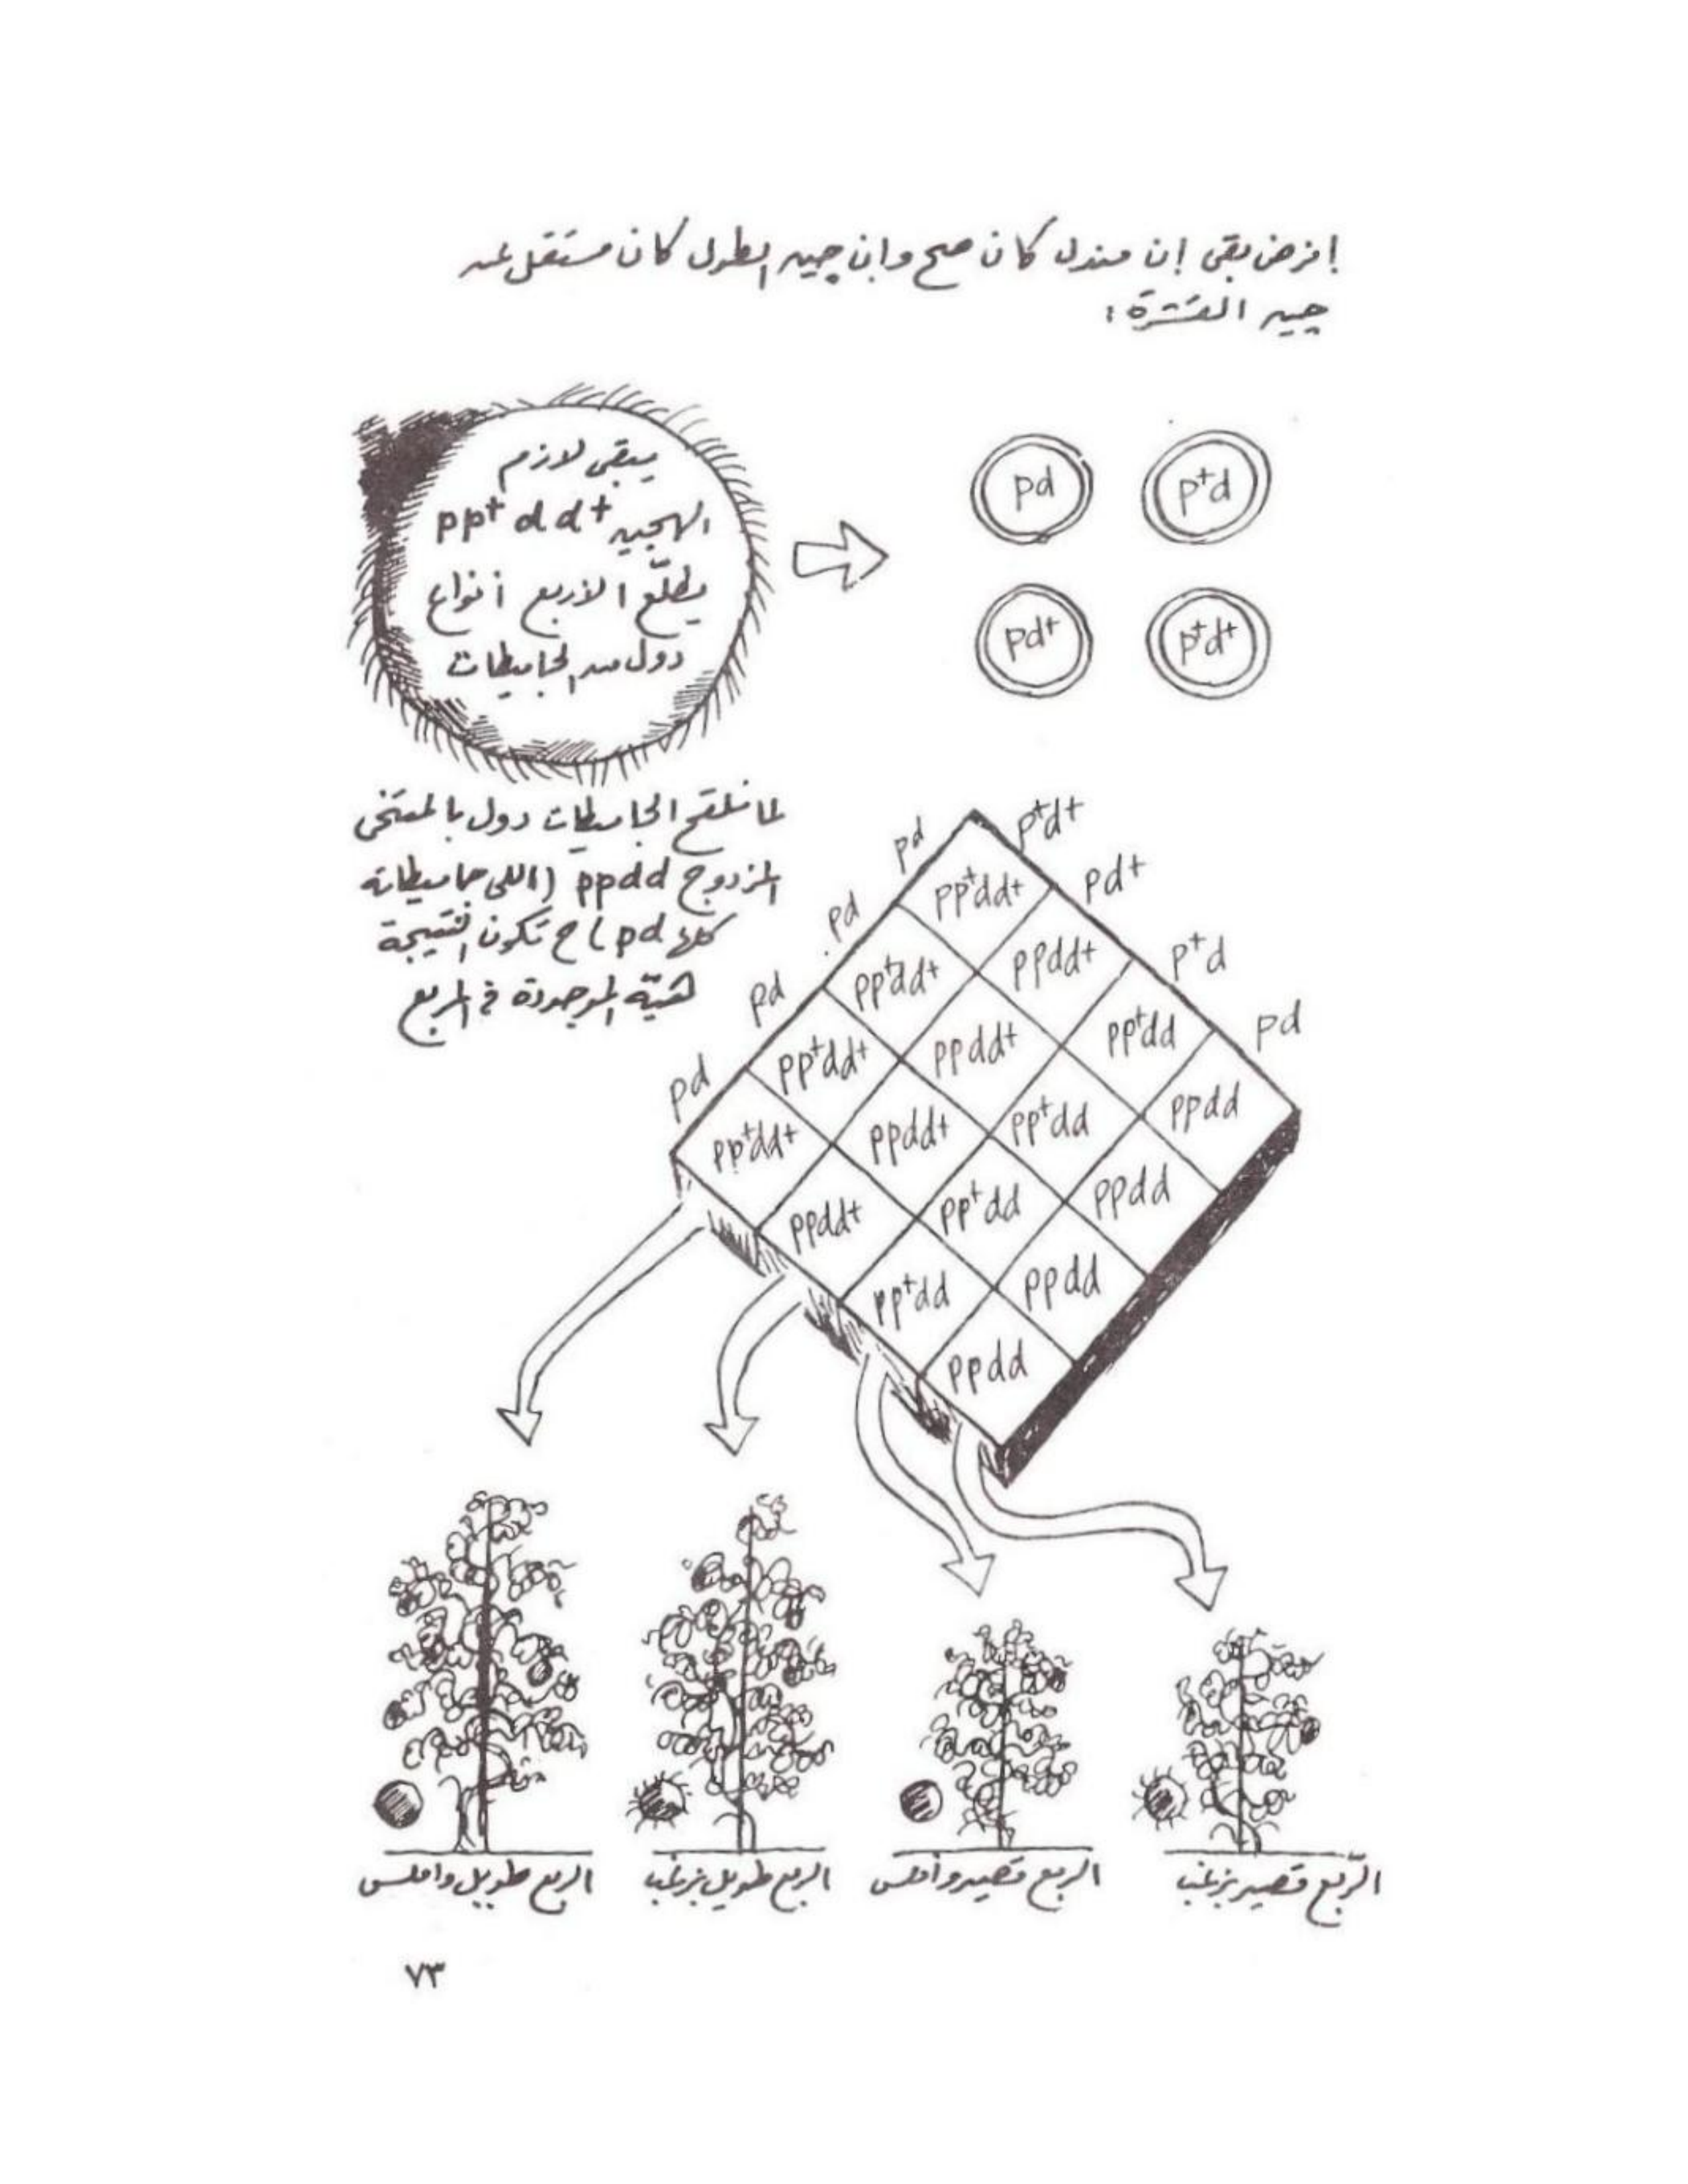 افرض بقى إن مندل كان صح وان چين الطول كان مستقل عن
چين القشرة :
يبقى لازم
الهجين pp+ dd+
يطلّع الأربع أنواع
دول من الجاميطات
pd
p+d
pd+
p+d+
لما نلقح الجاميطات دول بالمتنحى
المزدوج ppdd (اللى جاميطاته
كلها pd) ح تكون النتيجة
هيّه الموجودة فى المربع
pd
pd
pd
pd
p+d+
pd+
p+d
pd
pp+dd+
pp+dd+
ppdd+
pp+dd+
ppdd+
pp+dd
pp+dd+
ppdd+
pp+dd
ppdd
ppdd+
pp+dd
ppdd
pp+dd
ppdd
ppdd
الربع طويل واملس
الربع طويل بزغب
الربع قصير وأملس
الرّبع قصير بزغب
٧٣